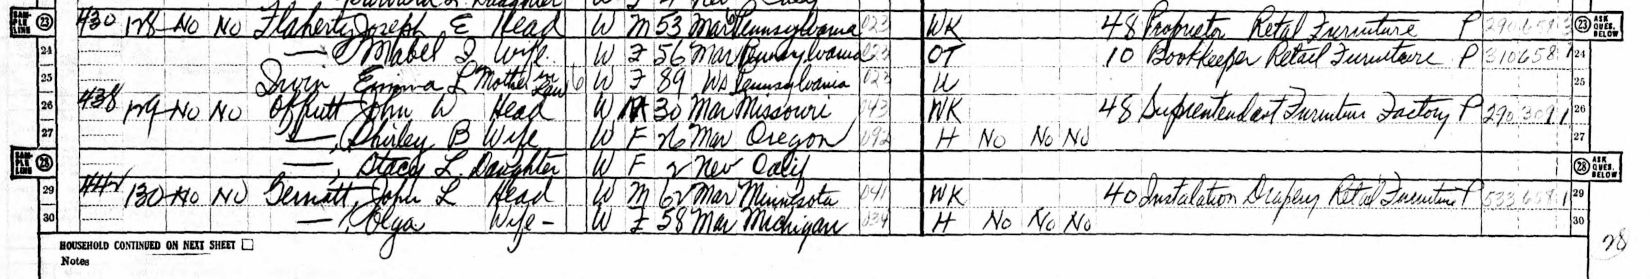 SAM-PLE LINE 23 430 128 No No Flaherty, Joseph E Head W M 53 Mar Pennsylvania 023 WK 48 Proprietor Retail Furniture P 290 658 3 23 ASK QUES. BELOW
24 —, Mabel I Wife W F 56 Mar Pennsylvania 023 OT 10 Bookkeeper Retail Furniture P 310 658 1 24
25 Irvin Emma L Mother in Law 6 W F 89 Wd Pennsylvania 023 U 25
26 438 129 No No Offutt John W Head W M 30 Mar Missouri 043 WK 48 Suprentendent Furniture Factory P 290 309 1 26
27 —, Shirley B Wife W F 26 Mar Oregon 092 H No No No 27
SAM-PLE LINE 28 —, Stacy L. Daughter W F 2 Nev Calif 28 ASK QUES. BELOW
29 442 130 No No John L Head W M 62 Mar Minnistota 041 WK 40 Instalation Drapery Retail Furniture P 533 658 1 29
30 —, Olga Wife - W F 58 Mar Michigan 034 H No No No 30
HOUSEHOLD CONTINUED ON NEXT SHEET
Notes
28